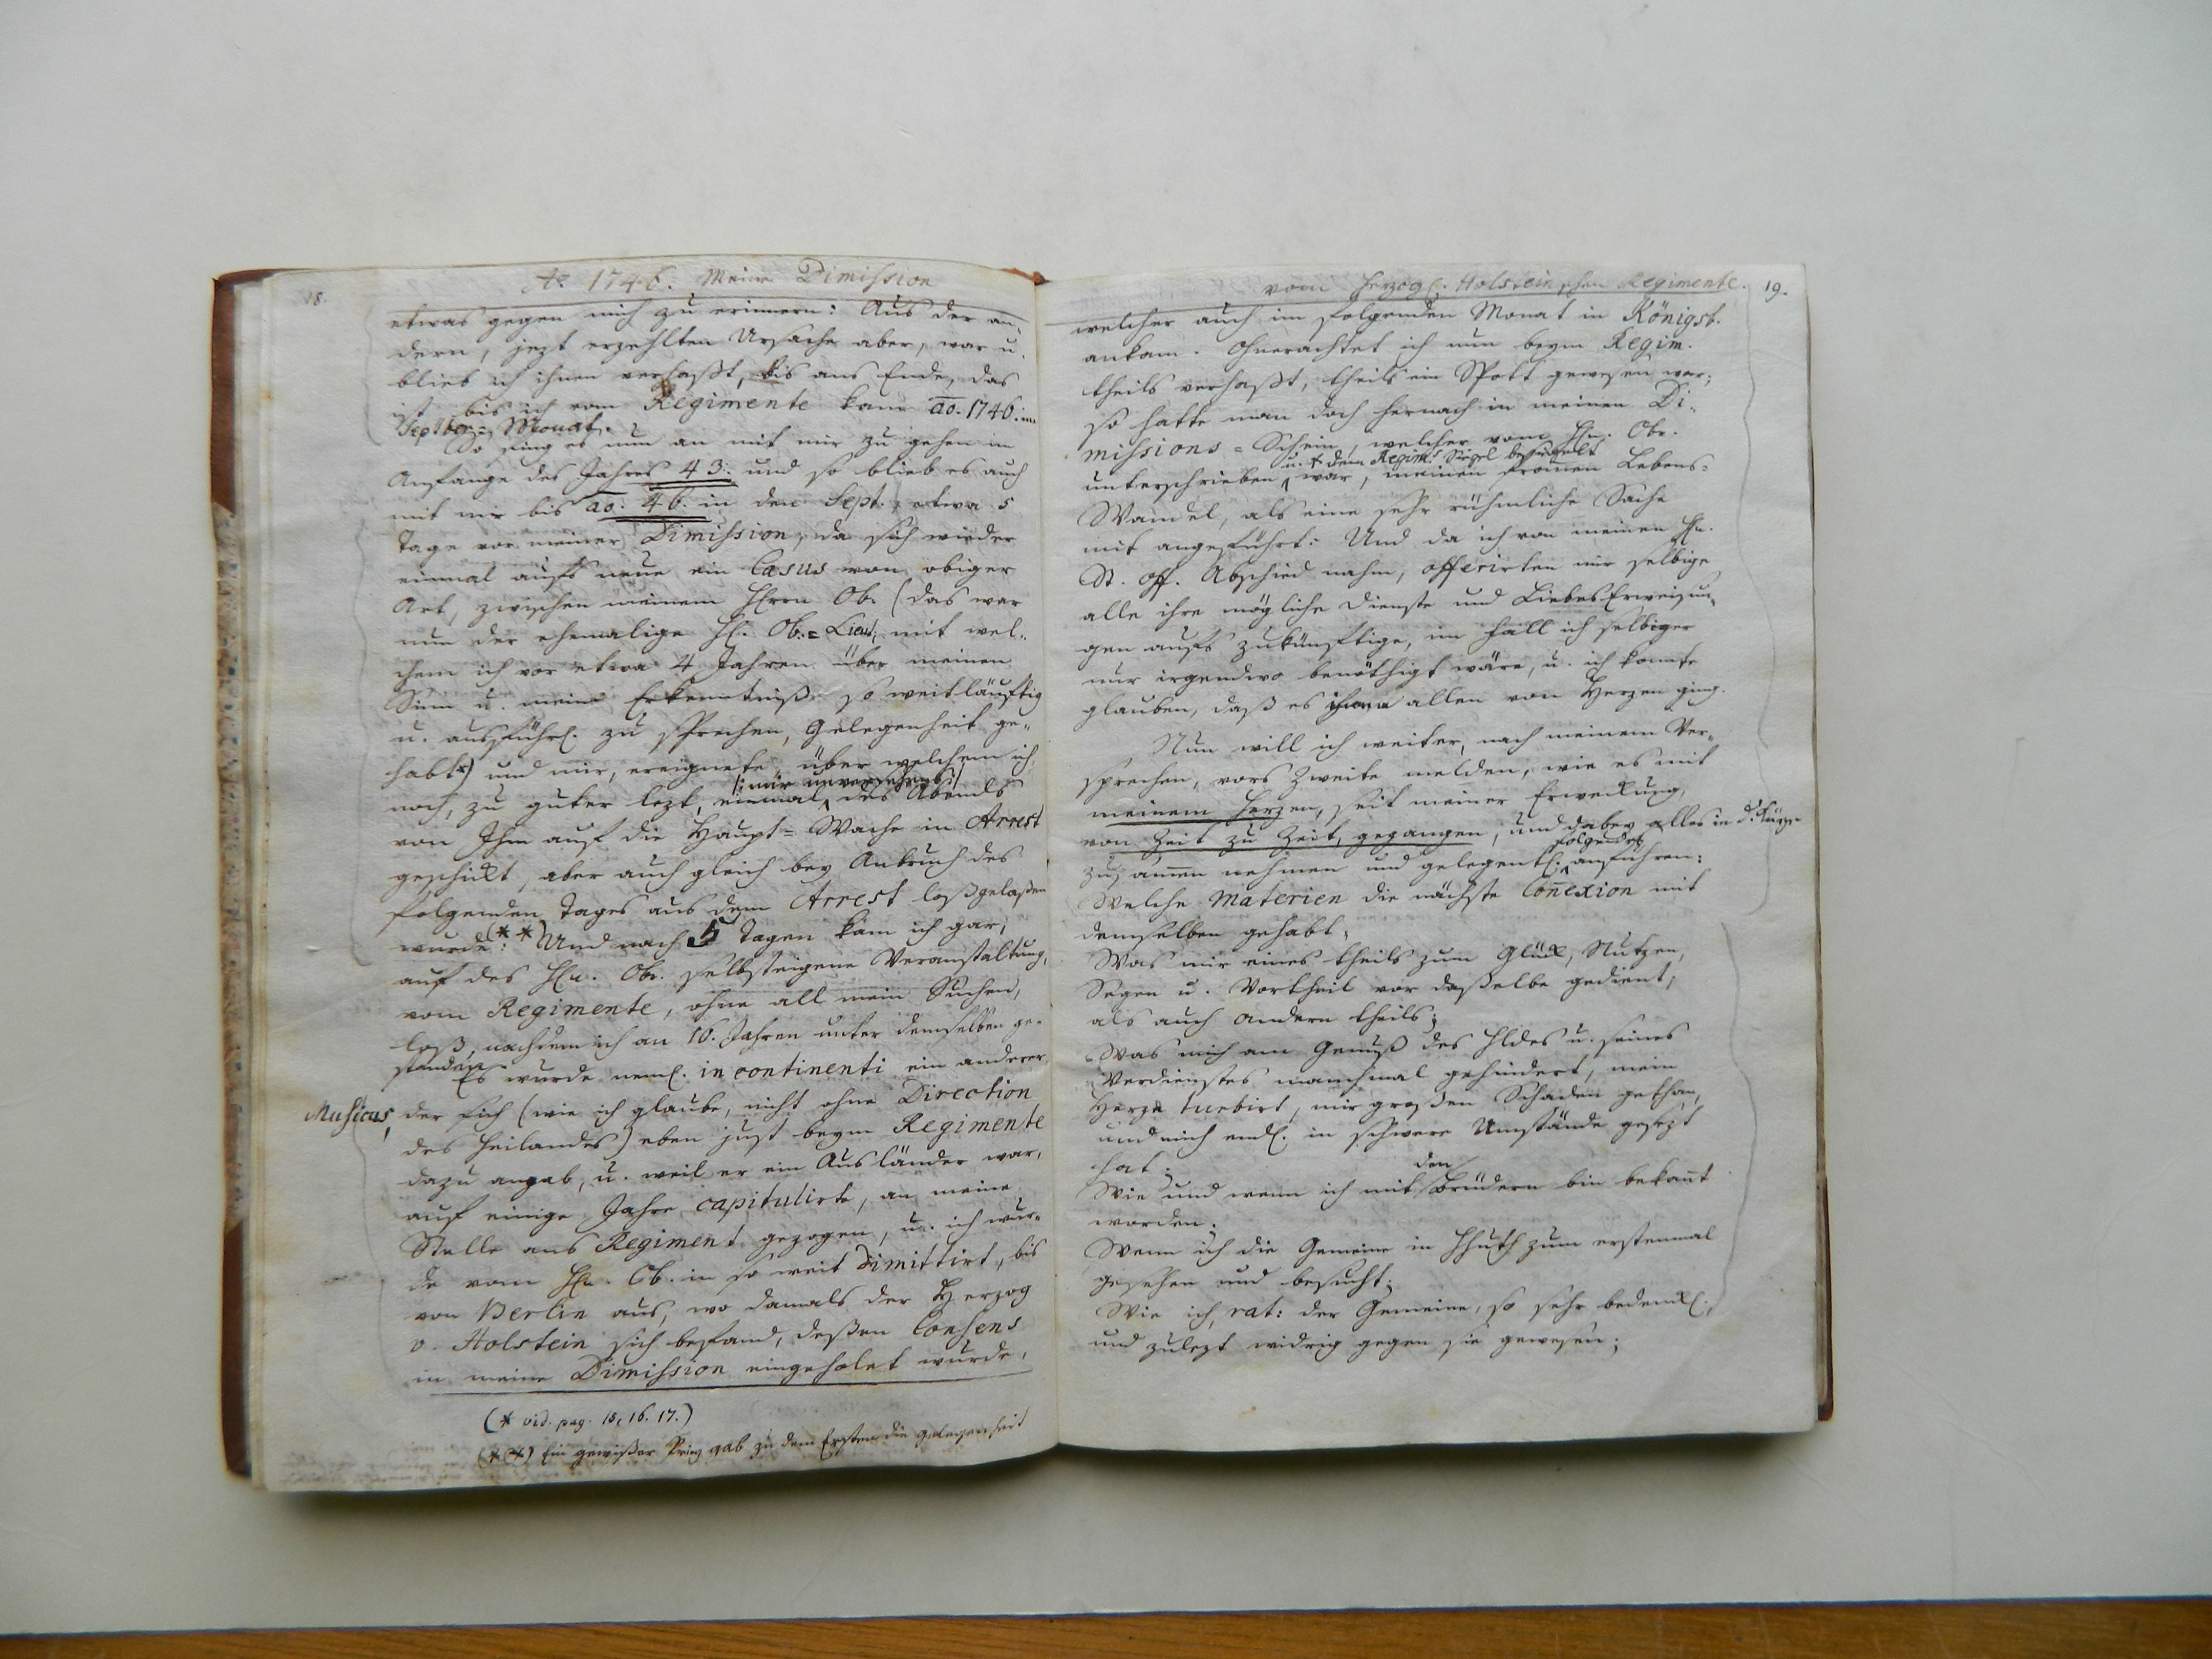 18.
Ao 1746. Meine Dimission
etwas gegen mich zu erinnern: Aus der an-
dern, jezt erzehlten Ursache aber, war u.
blieb ich ihnen verhaßt, bis ans Ende, das
ist, bis ich vom Regimente kam ao. 1746. im
Septbr = Monat.
So fing es nun an mit mir zu gehen im
Anfange des Jahres 43: und so blieb es auch
mit mir bis ao: 46. in den Sept., etwa 5
Tage vor meiner Dimission, da sich wieder
einmal aufs neue ein Casus von obiger
Art, zwischen meinem Herrn Ob. (das war
nun der ehemalige H. Ob. = Lieut, mit wel-
chem ich vor etwa 4 Jahren über meinen
Sinn u. meine Erkenntniß so weitläuftig
u. ausführl. zu sprechen, Gelegenheit ge-
habt*) und mir, ereignete, über welchem ich
noch, zu guter lezt, einmal, (: mir unversehens :) des Abends
von Ihm auf die Haupt = Wache in Arrest
geschickt, aber auch gleich bey Anbruch des
folgenden Tages aus dem Arrest loßgelaßen
wurde: (**) Und nach 5 Tagen kam ich gar,
auf des Hn. Ob. selbsteigene Veranstaltung,
vom Regimente, ohne all mein Suchen,
loß, nachdem ich an 16. Jahren unter demselben ge-
standen. Es wurde neml. in continenti ein anderer
Musicus, der sich (wie ich glaube, nicht ohne Direction
des Heilandes) eben just beym Regimente
dazu angab, u. weil er ein Ausländer war,
auf einige Jahre capitulirte, an meine
Stelle ans Regiment gezogen, u. ich wur-
de vom Hn. Ob. in so weit dimittirt, bis
von Berlin aus, wo damals der Herzog
v. Holstein sich befand, deßen Consens
in meine Dimission eingeholet wurde,
(* vid. pag. 15, 16. 17.)
(**) Ein gewißer Prinz gab zu dem Ersten die Gelegenheit
vom Herzogl. Holsteinschen Regimente. 19.
welcher auch im folgenden Monat in Königsb.
ankam. Ohnerachtet ich nun beym Regim.
theils verhaßt, theils ein Spott gewesen war;
so hatte man doch hernach in meinen Di-
missions = Schein, welcher vom Hn. Ob.
unterschrieben u. + dem Regim.s Siegel besiegelt war, meinen frommen Lebens-
Wandel, als eine sehr rühmliche Sache
mit angeführt: Und da ich von meinen Hn.
St. off. Abschied nahm, offerirten mir selbige
alle ihre mögliche Dienste und Liebes Erweisun-
gen aufs zukünftige, im Fall ich selbiger
nur irgendwo benöthigt wäre, u. ich konnte
glauben, daß es ihnen allen von Herzen ging.
Nun will ich weiter, nach meinem Ver-
sprechen, vors Zweite melden, wie es mit
meinem Herzen, seit meiner Erweckung,
von Zeit zu Zeit, gegangen, und dabey alles in d. Kürze
zusammen nehmen und gelegentl. folgendes anführen:
Welche Materien die nächste Connexion mit
demselben gehabt;
Was mir eines theils zum Glück, Nutzen,
Segen u. Vortheil vor daßelbe gedient;
als auch andern theils;
Was mich am Genuß des Hldes u. seines
Verdienstes manchmal gehindert, mein
Herze turbirt, mir großen Schaden gethan,
und mich endl. in schwere Umstände gesezt
hat;
Wie und wenn ich mit den Brüdern bin bekannt
worden.
Wenn ich die Gemeine in Hhuth zum erstenmal
gesehen und besucht;
Wie ich, rat: der Gemeine, so sehr bedenkl.,
und zulezt widrig gegen sie gewesen;